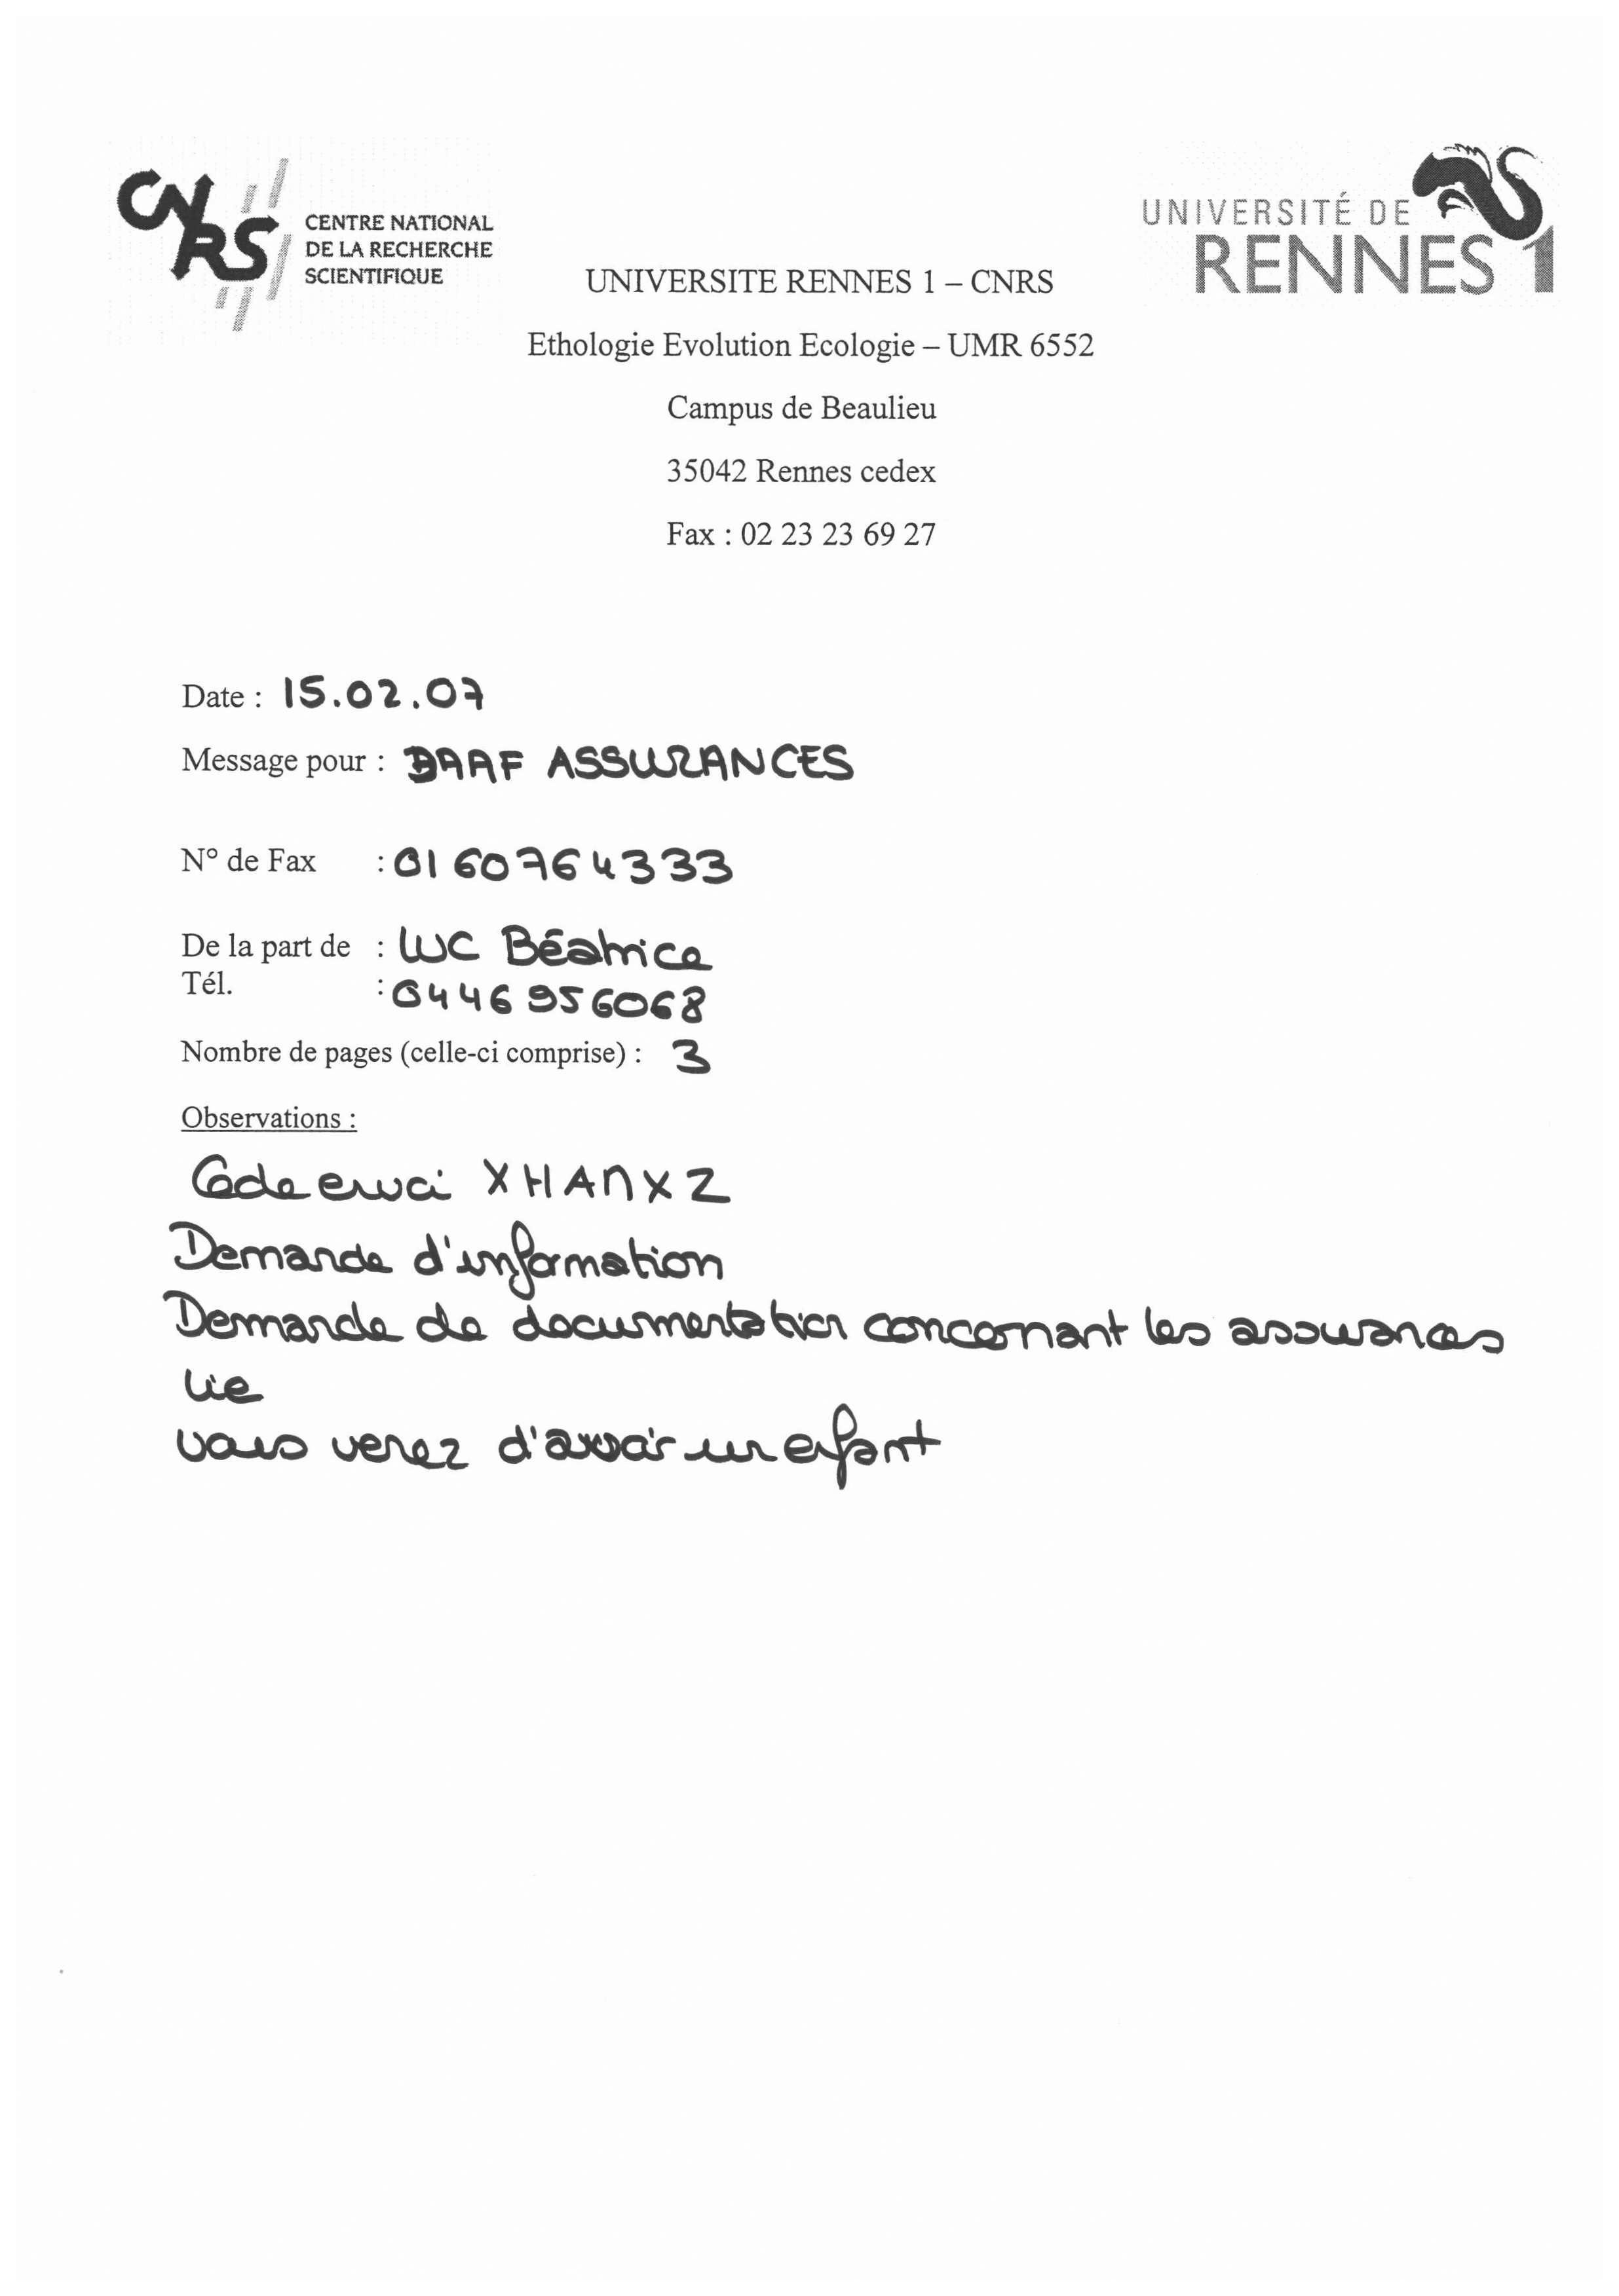 CNRS
CENTRE NATIONAL
DE LA RECHERCHE
SCIENTIFIQUE
UNIVERSITÉ DE
RENNES 1
UNIVERSITE RENNES 1 – CNRS
Ethologie Evolution Ecologie – UMR 6552
Campus de Beaulieu
35042 Rennes cedex
Fax : 02 23 23 69 27
Date : 15.02.07
Message pour : DAAF ASSURANCES
N° de Fax : 0160764333
De la part de : LUC Béatrice
Tél. : 0446956068
Nombre de pages (celle-ci comprise) : 3
Observations :
Code envoi XHANXZ
Demande d'information
Demande de documentation concernant les assurances
vie
vous venez d'avoir un enfant